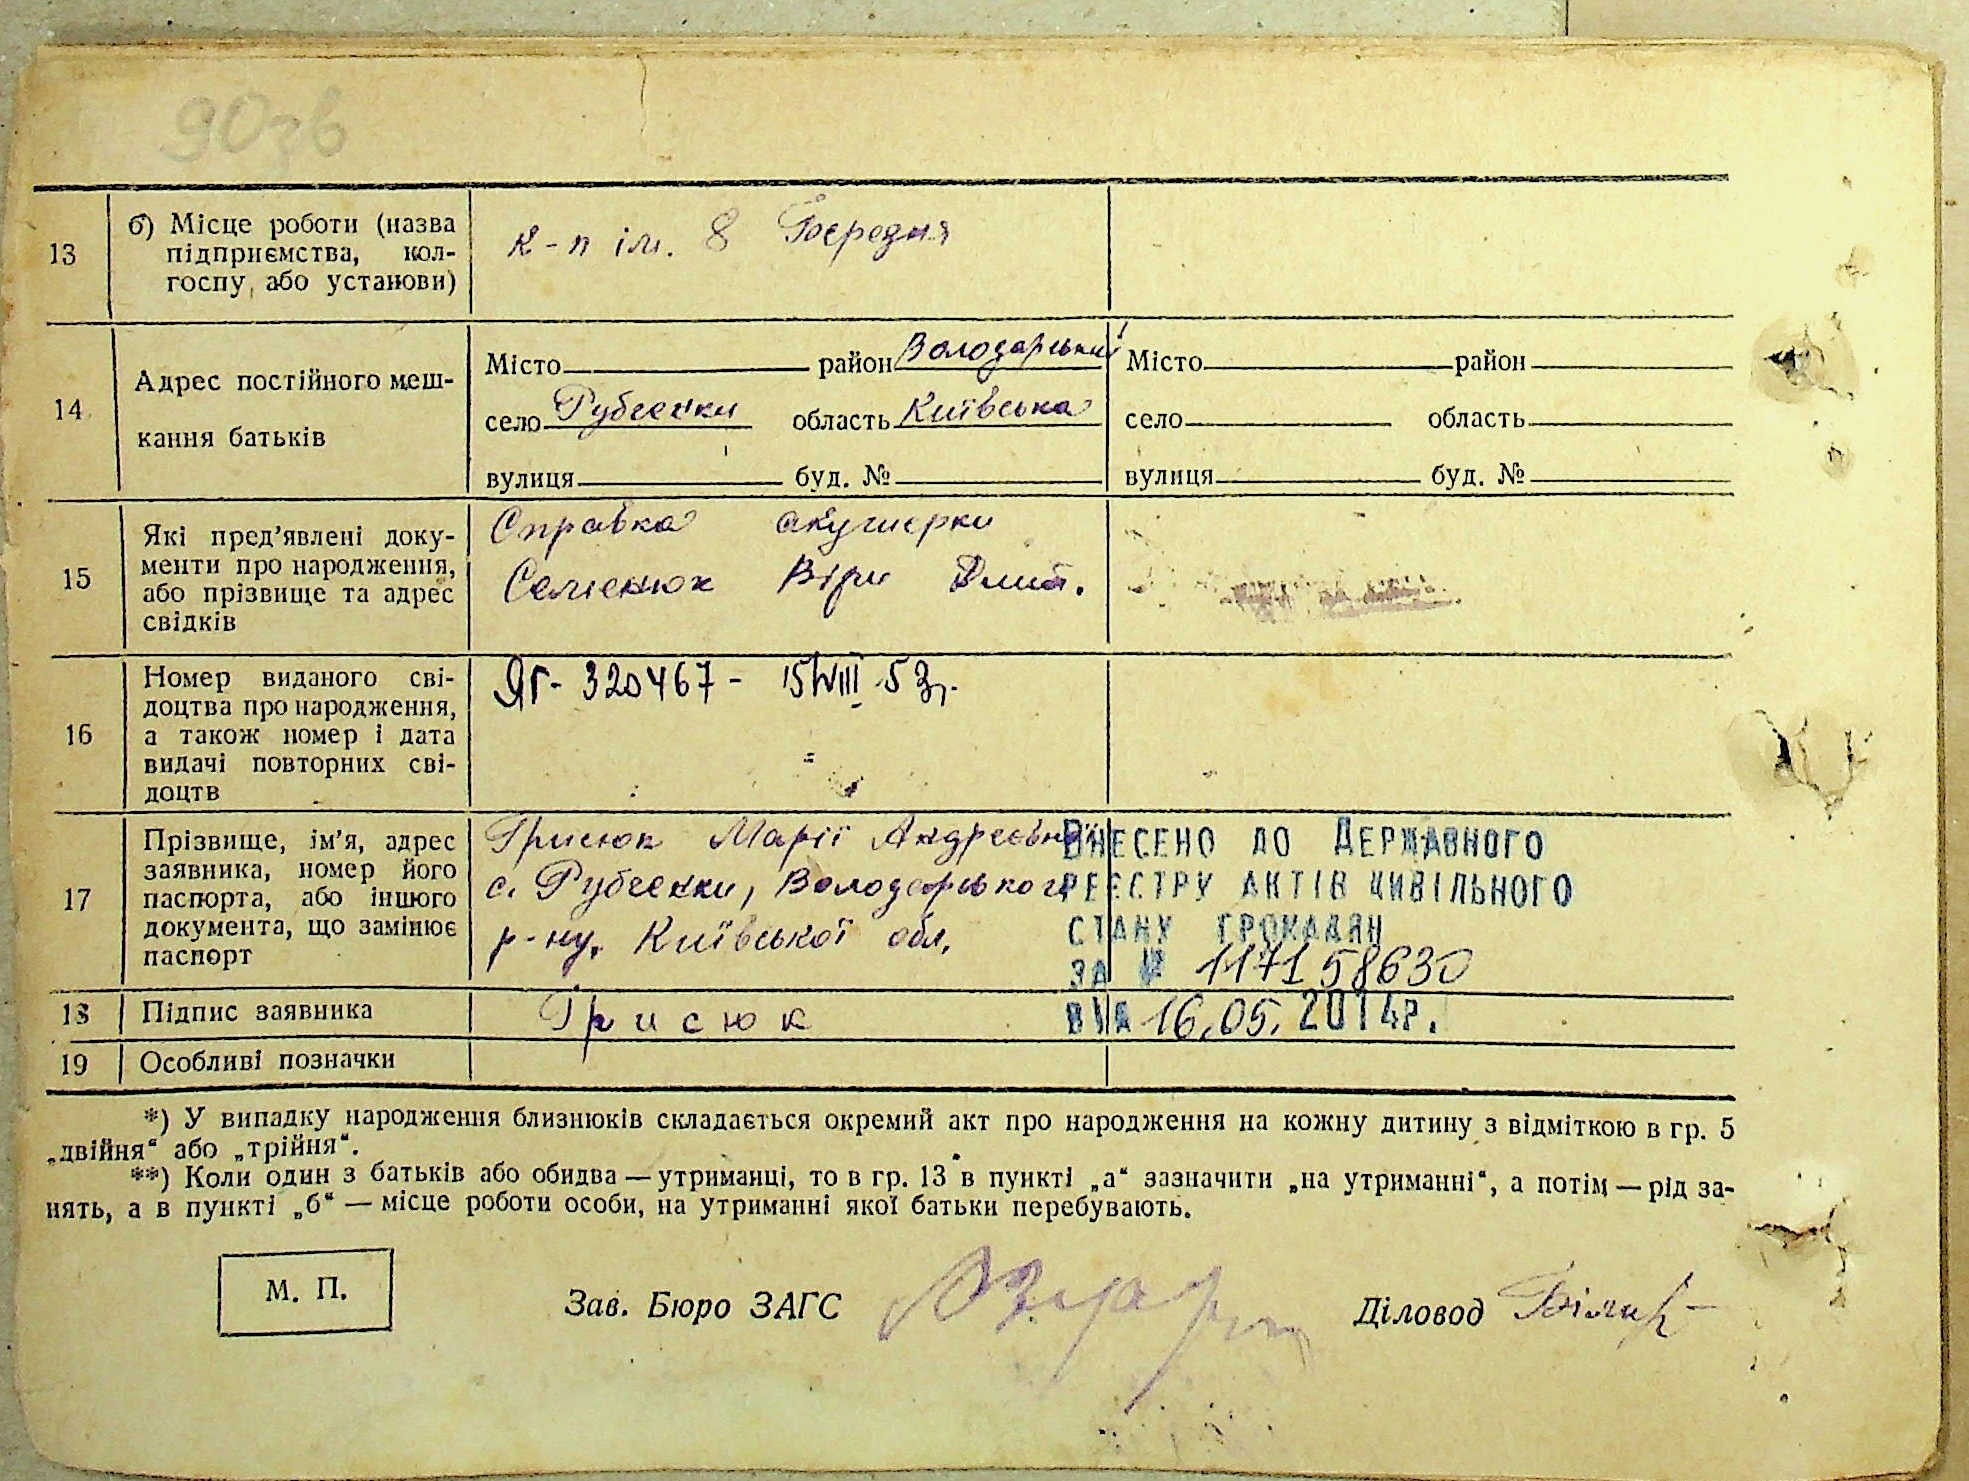 90зв
13 б) Місце роботи (назва підприємства, кол-госпу або установи) к-п ім. 8 Березня
14 Адрес постійного меш-
кання батьків
Місто район Володарський Місто район
село область Київська село область
вулиця буд. № вулиця буд. №
15 Які пред'явлені доку-
менти про народження,
або прізвище та адрес
свідків
Справка акушерки
Семенюк Віри Дмит.
16 Номер виданого сві-
доцтва про народження,
а також номер і дата
видачі повторних сві-
доцтв
ЯГ- 320467 - 15/VIII 53р.
17 Прізвище, ім'я, адрес
заявника, номер його
паспорта, або іншого
документа, що замінює
паспорт
Грисюк Марії Андреєвн
с. Володарського
р-ну, Київської обл.
Внесено до Державного
реєстру актів цивільного
стану громадян
за № 1171 58630
від 16.05.2014р.
18 Підпис заявника Грисюк
19 Особливі позначки
*) У випадку народження близнюків складається окремий акт про народження на кожну дитину з відміткою в гр. 5
„двійня“ або „трійня“.
**) Коли один з батьків або обидва — утриманці, то в гр. 13 в пункті „а“ зазначити „на утриманні“, а потім — рід за-
нять, а в пункті „б“ — місце роботи особи, на утриманні якої батьки перебувають.
М. П. Зав. Бюро ЗАГС Діловод